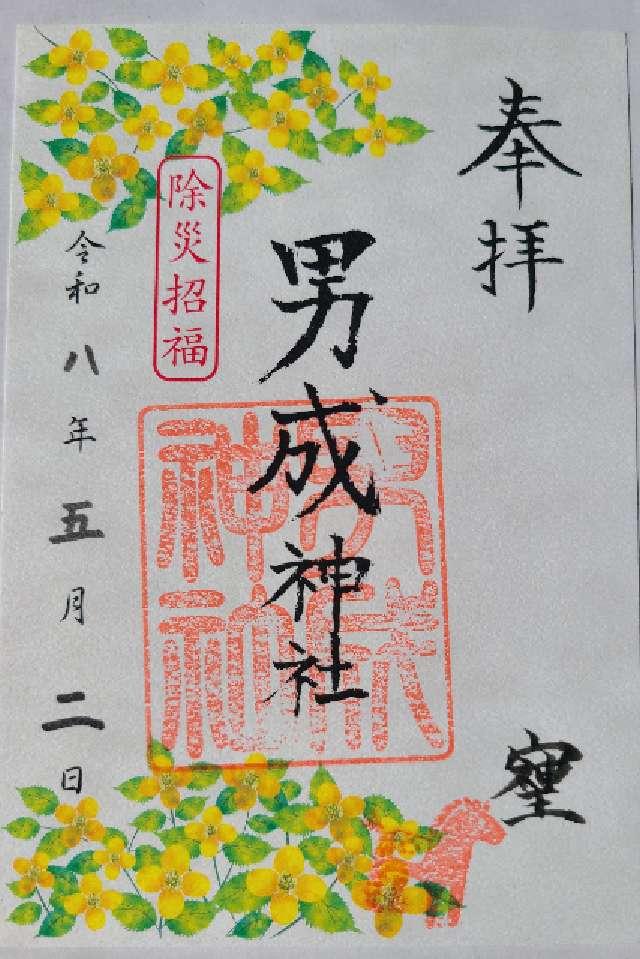 奉拝
男成神社
男成
神社
除災招福
令和八年五月二日